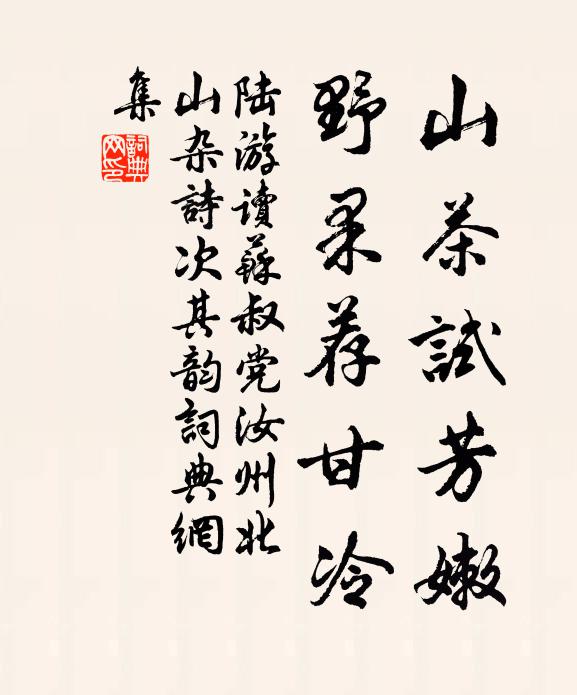 山茶試芳嫩
野果荐甘冷
陆游讀蘇叔党汝州北
山杂詩次其韵詞典網
集
詞典
网印